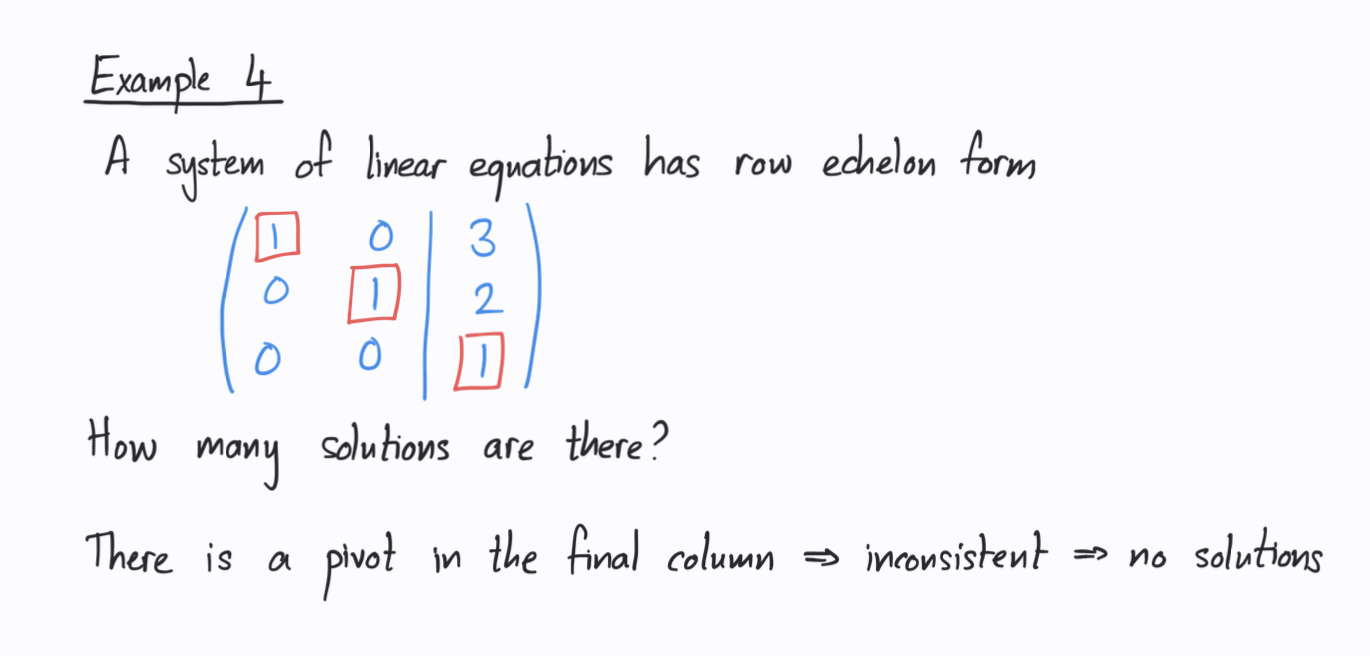 Example 4
A system of linear equations has row echelon form
1 0 3
0 1 2
0 0 1
How many solutions are there?
There is a pivot in the final column ⇒ inconsistent ⇒ no solutions